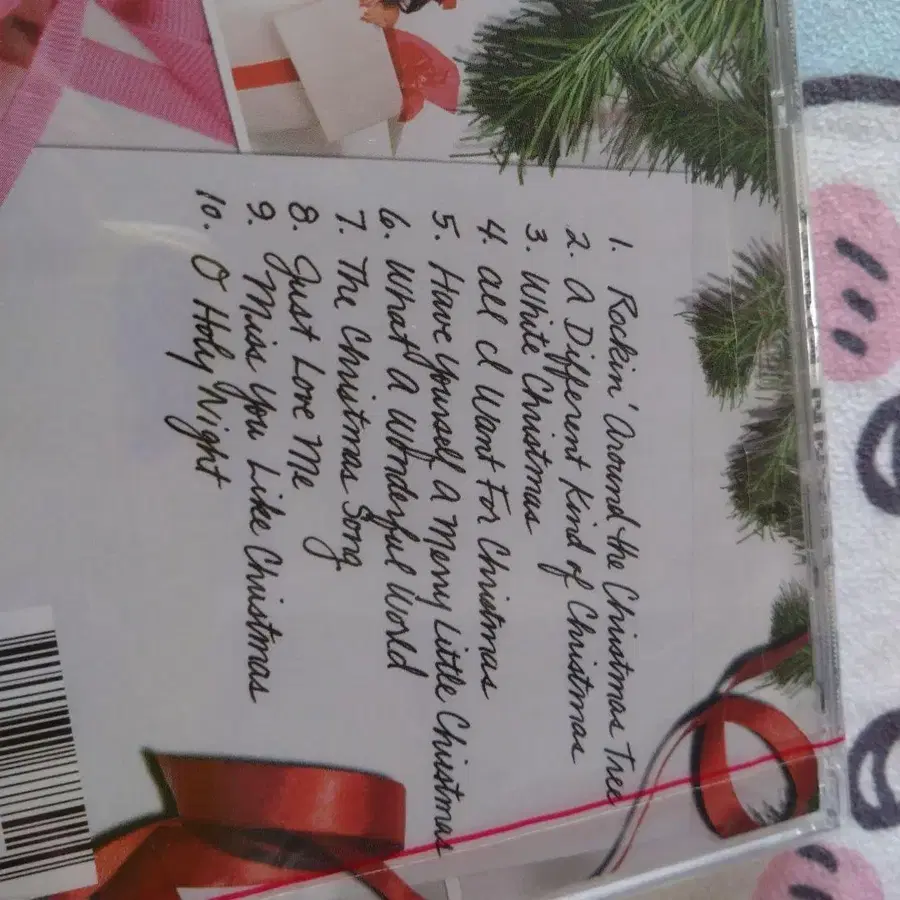 1. Rockin' Around the Christmas Tree
2. A Different Kind of Christmas
3. White Christmas
4. All I Want For Christmas
5. Have Yourself A Merry Little Christmas
6. What A Wonderful World
7. The Christmas Song
8. Just Love Me
9. Miss You Like Christmas
10. O Holy Night